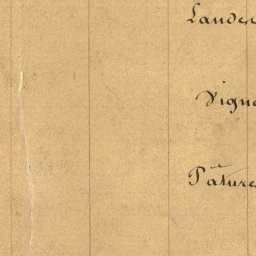 Lande
Vigne
Pâture